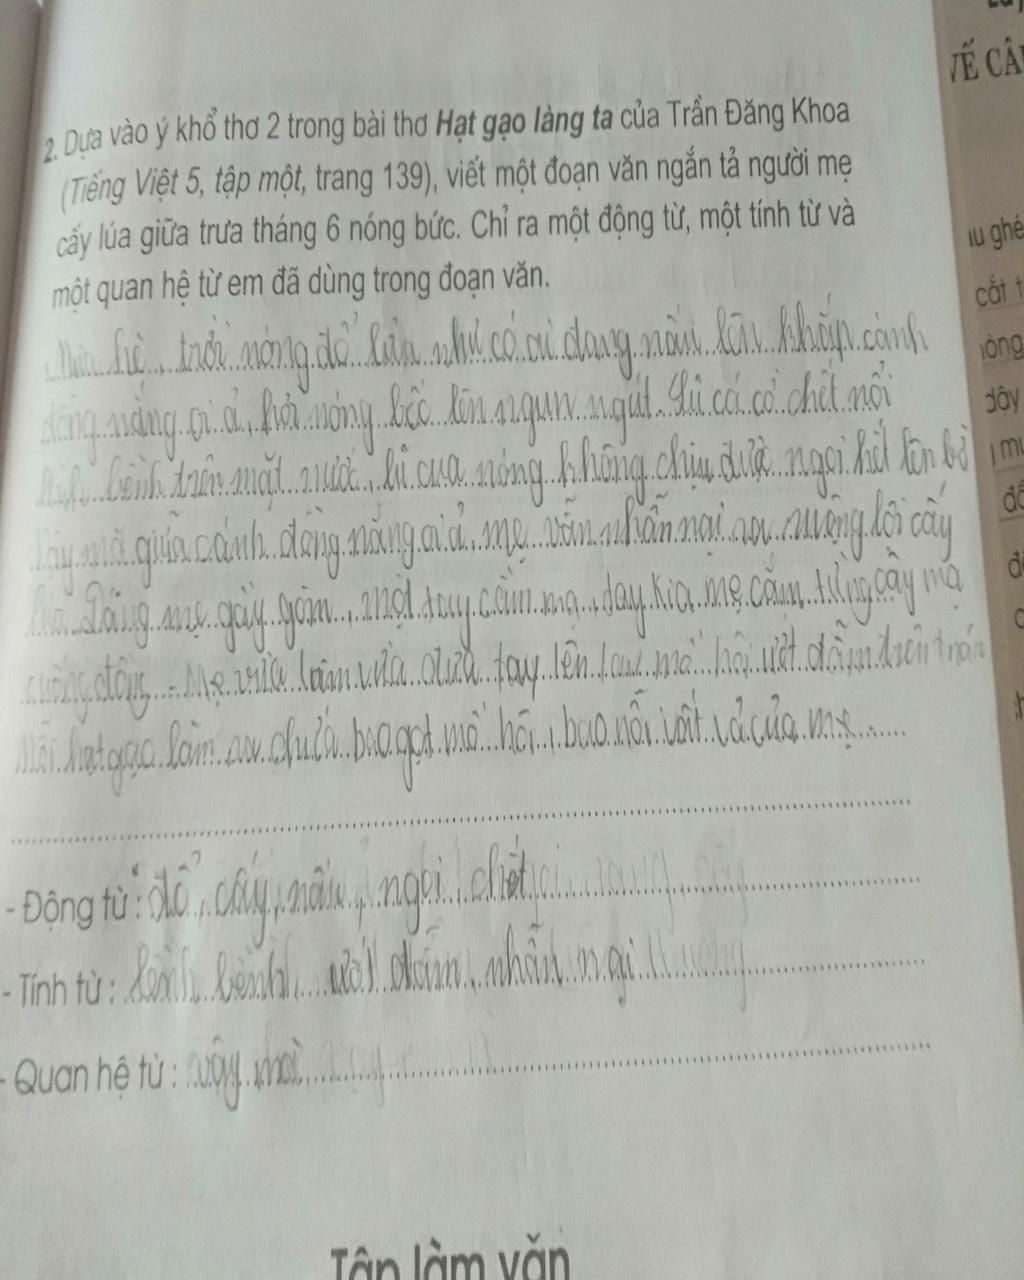 VẾ CÂU
2. Dựa vào ý khổ thơ 2 trong bài thơ Hạt gạo làng ta của Trần Đăng Khoa
(Tiếng Việt 5, tập một, trang 139), viết một đoạn văn ngắn tả người mẹ
cấy lúa giữa trưa tháng 6 nóng bức. Chỉ ra một động từ, một tính từ và
một quan hệ từ em đã dùng trong đoạn văn.
hè, trời nóng đổ lửa như có ai đang nấu lên khắp cánh
đồng nắng oi ả, hơi nóng bốc lên ngun ngút. Lũ cá cờ chết nổi
bềnh trên mặt nước, lũ cua nóng không chịu được ngoi hết lên bờ
Vậy mà giữa cánh đồng nắng oi ả, mẹ vẫn nhẫn nại ra ruộng lội cấy
Dáng mẹ gầy gòm, một tay cầm mạ, day kia mẹ cắm từng cây mạ
xuống đồng. Mẹ vừa làm vừa đưa tay lên lau mồ hôi ướt đẫm trên trán
Mỗi hạt gạo làm ra chứa bao gọt mồ hôi, bao nỗi vất vả của mẹ
- Động từ : đổ, cấy, nấu, ngoi, chết
- Tính từ : lềnh bềnh, ướt đẫm, nhẫn nại
- Quan hệ từ : vậy mà
Tập làm văn
ghé
cất
dây